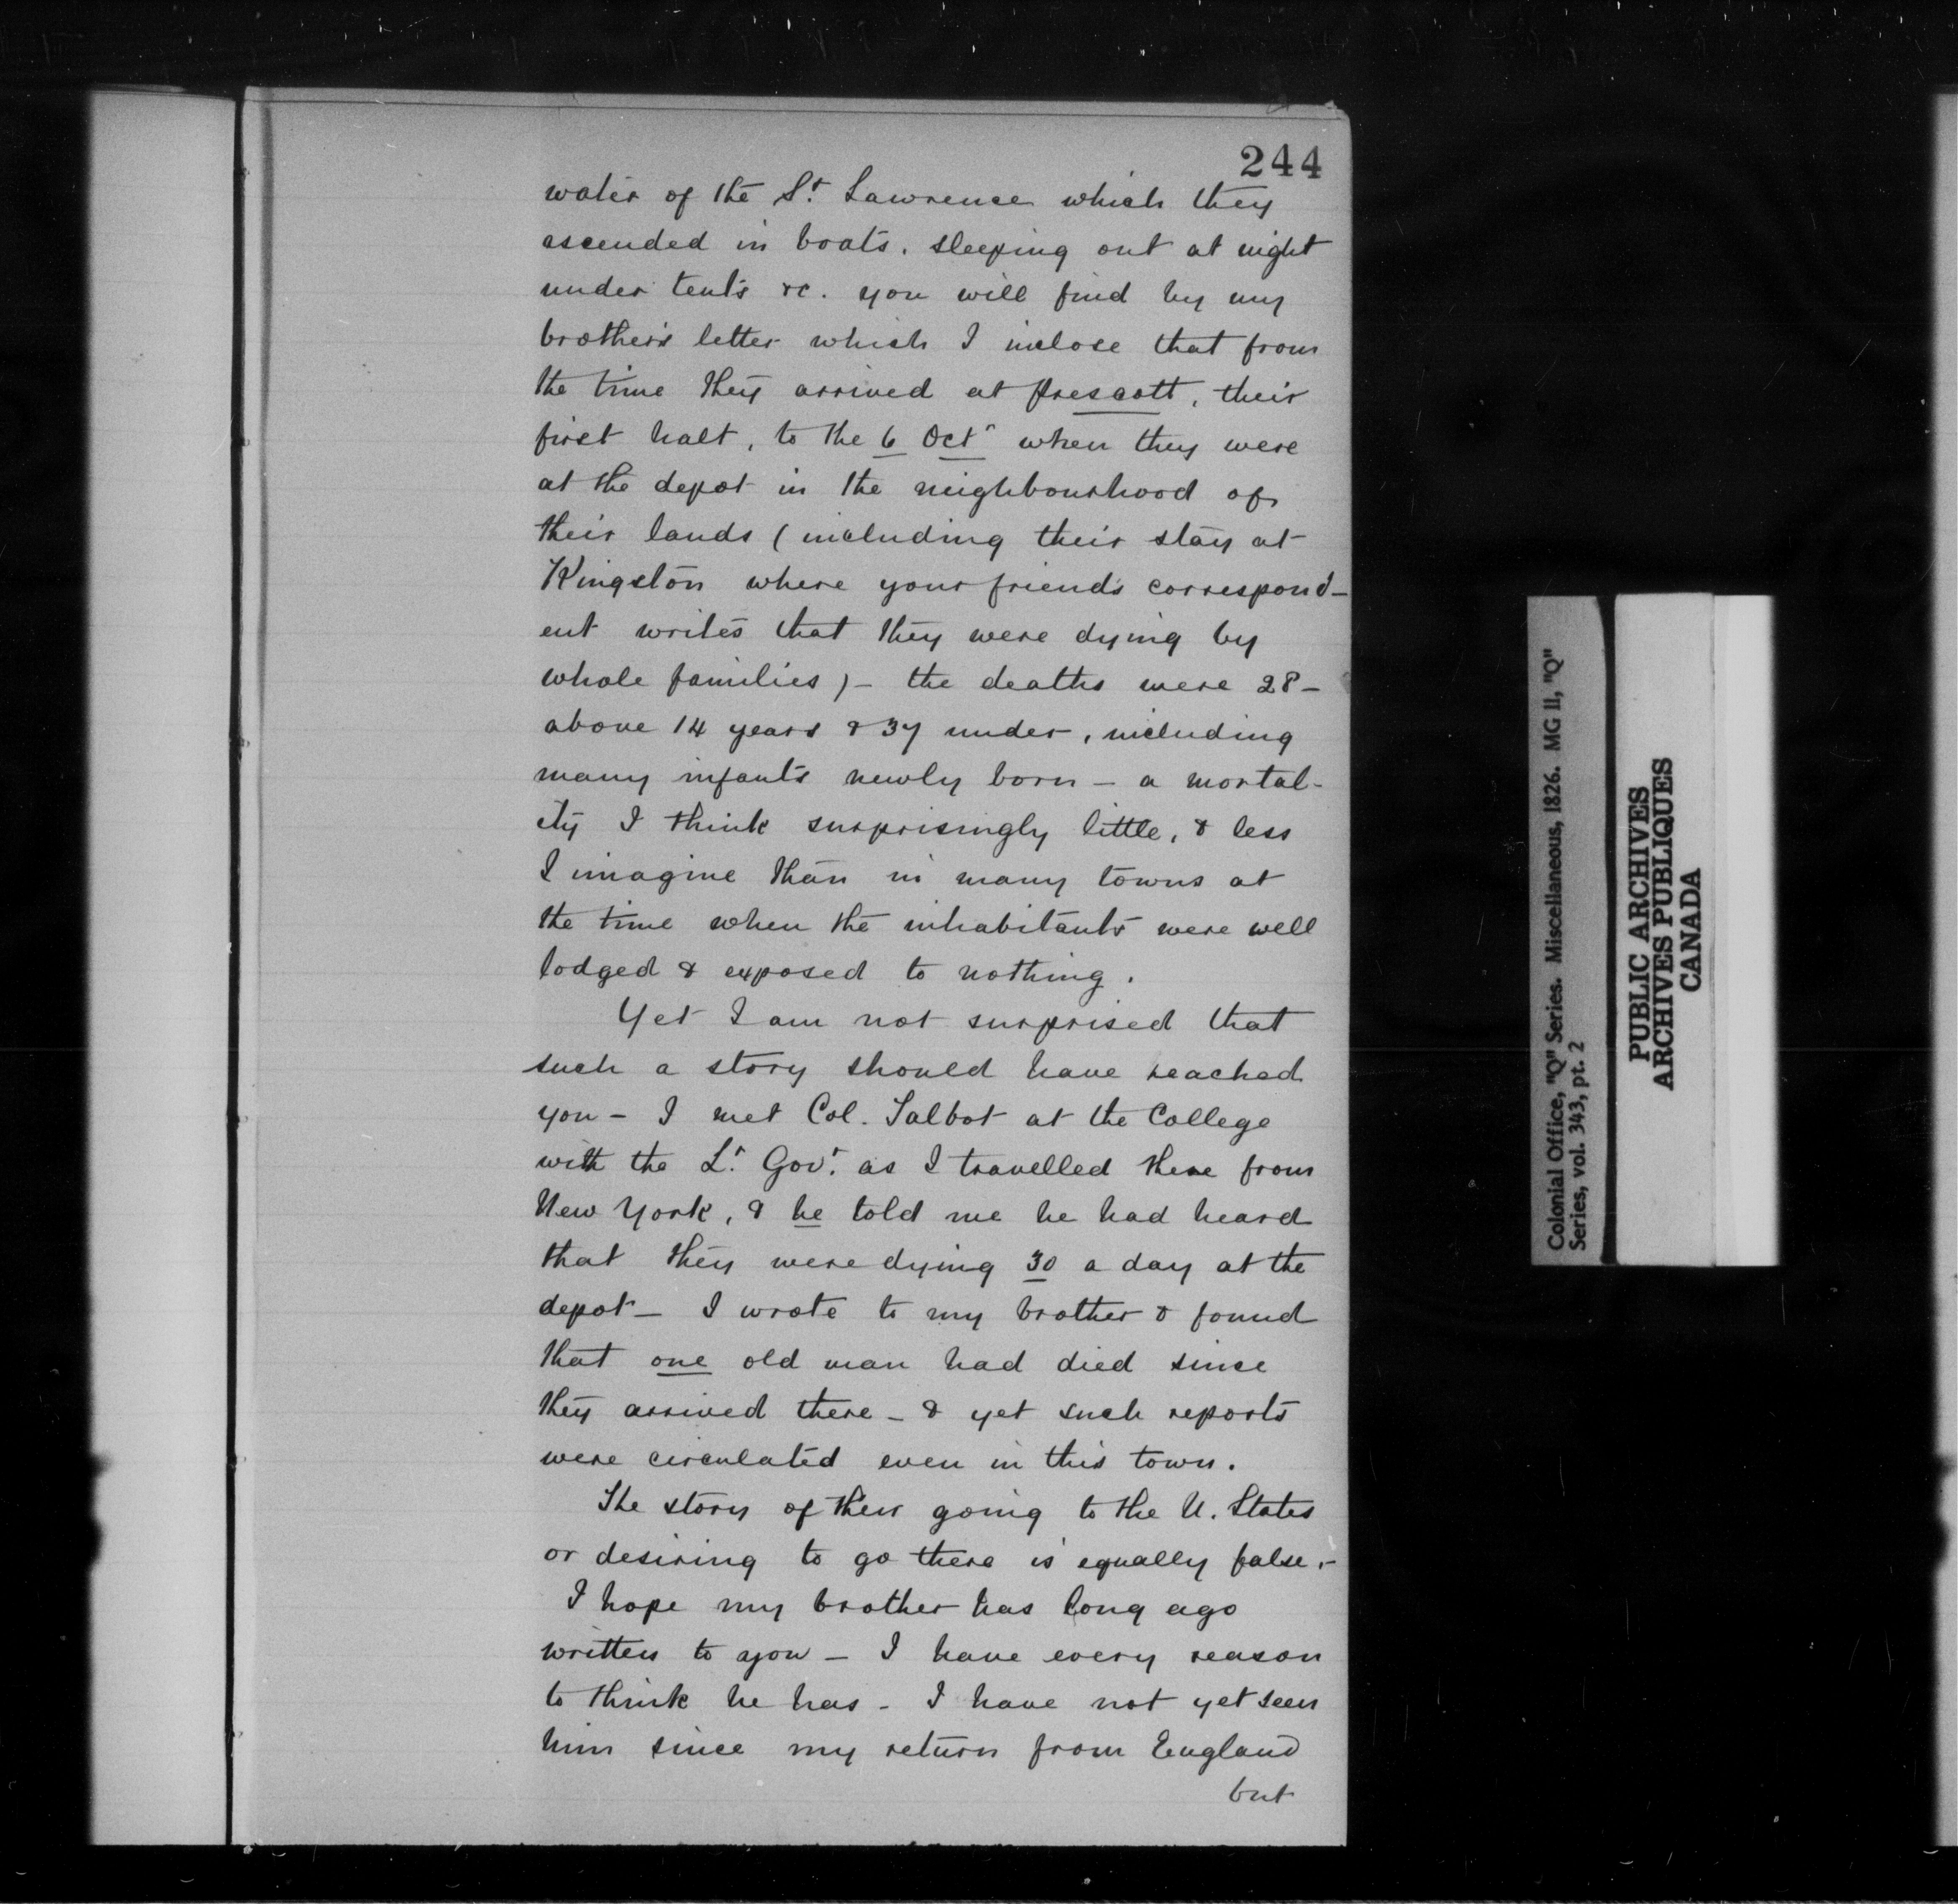 244
water of the St. Lawrence which they
ascended in boats, sleeping out at night
under tents &c. you will find by my
brother's letter which I inclose that from
the time they arrived at Prescott, their
first halt, to the 6 Octr when they were
at the depot in the neighbourhood of
their lands (including their stay at
Kingston where your friend's correspond-
ent writes that they were dying by
whole families) - the deaths were 28 -
above 14 years & 37 under, including
many infants newly born - a mortal-
ity I think surprisingly little, & less
I imagine than in many towns at
the time when the inhabitants were well
lodged & exposed to nothing.
Yet I am not surprised that
such a story should have reached
you - I met Col. Talbot at the College
with the Lt. Govr. as I travelled there from
New York, & he told me he had heard
that they were dying 30 a day at the
depot - I wrote to my brother & found
that one old man had died since
they arrived there - & yet such reports
were circulated even in this town.
The story of their going to the U. States
or desiring to go there is equally false. -
I hope my brother has long ago
written to you - I have every reason
to think he has - I have not yet seen
him since my return from England
but
Colonial Office, "Q" Series. Miscellaneous, 1826. MG 11, "Q"
Series, vol. 343, pt. 2
PUBLIC ARCHIVES
ARCHIVES PUBLIQUES
CANADA